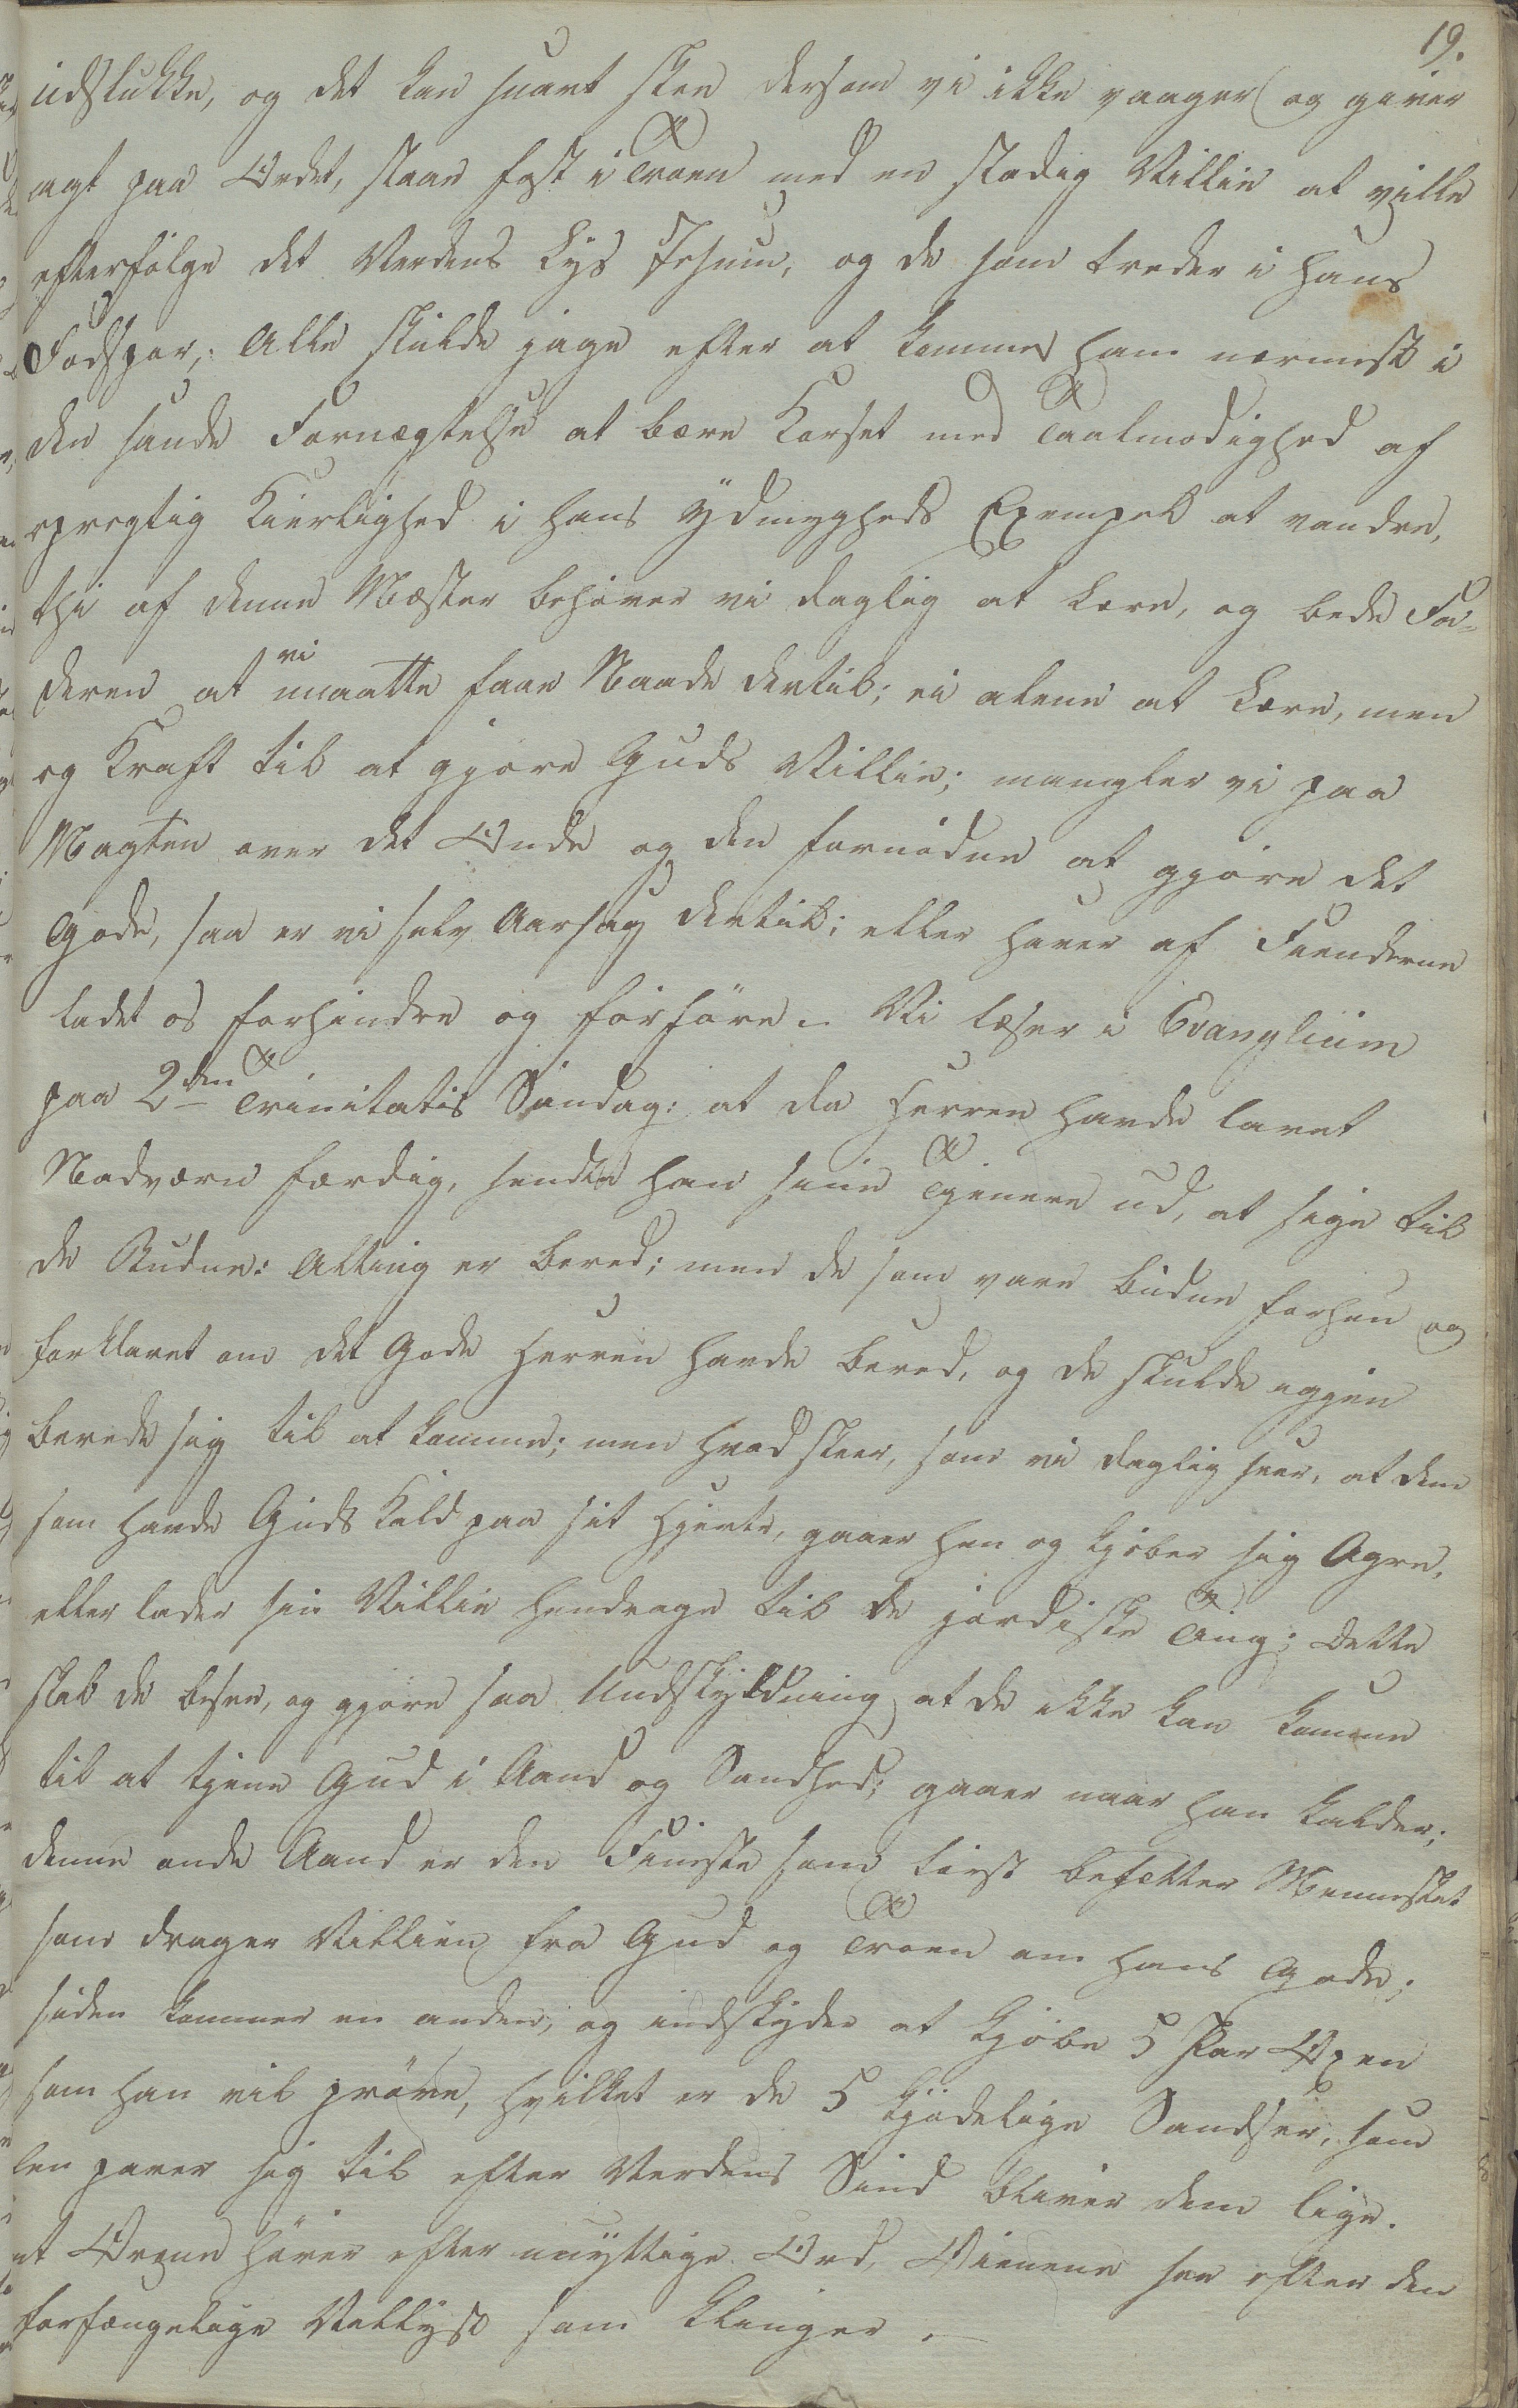 19.
udslukke, og det kan snart skee dersom vi ikke vaager og giver
agt paa Ordet, staae fast i Troen med en stadig Villie at ville
efterfølge det Verdens Lys Jesum, og de som træder i hans
Fodspor; Alle skulde jage efter at komme ham nærmest i
den sande Fornægtelse at bære Korset med Taalmodighed af
opregtig Kierlighed i hans Ydmygheds Exempel at vandre,
thi af denne Mæster behøver vi daglig at lære, og bede Fa-
deren at vi maatte faae Naade dertil; ei alene at lære, men
og Kraft til at gjøre Guds Villie; mangler vi paa
Magten over det Onde og den fornødne at gjøre det
Gode, saa er vi selv Aarsag dertil; eller haver af Fienderne
ladet os forhindre og forføre. Vi læser i Evanglium
paa 2den Trinitatis Søndag: at da Herren havde lavet
Nadvære færdig, sendte han sine Tjenere ud, at sige til
de Budne: Alting er bered; men de som vare budne forhen og
forklaret om det Gode Herren havde bered, og de skulde iggien
berede sig til at komme; men hvad skeer, som vi daglig seer, at den
som havde Guds Kald paa sit Hjerte, gaaer hen og kjøber sig Agre,
eller lader sin Villie hendrage til de jordiske Ting; dette
skal de besee, og gjøre saa Undskyldning at de ikke kan komme
til at tjene Gud i Aand og Sandhed; gaaer naar han kalder;
denne onde Aand er den Fineste som først besætter Mennesket
som drager Villien fra Gud og Troen om hans Gode;
siden kommer en anden, og indskyder at kjøbe 5 Par Oxen
som han vil prøve, hvilket er de 5 kjødelige Sandser, som
len parer sig til efter Verdens Sind bliver dem lige.
at Ørene hører efter unyttige Ord, Øienene see efter den
forfængelige Vellyst som klinger. —